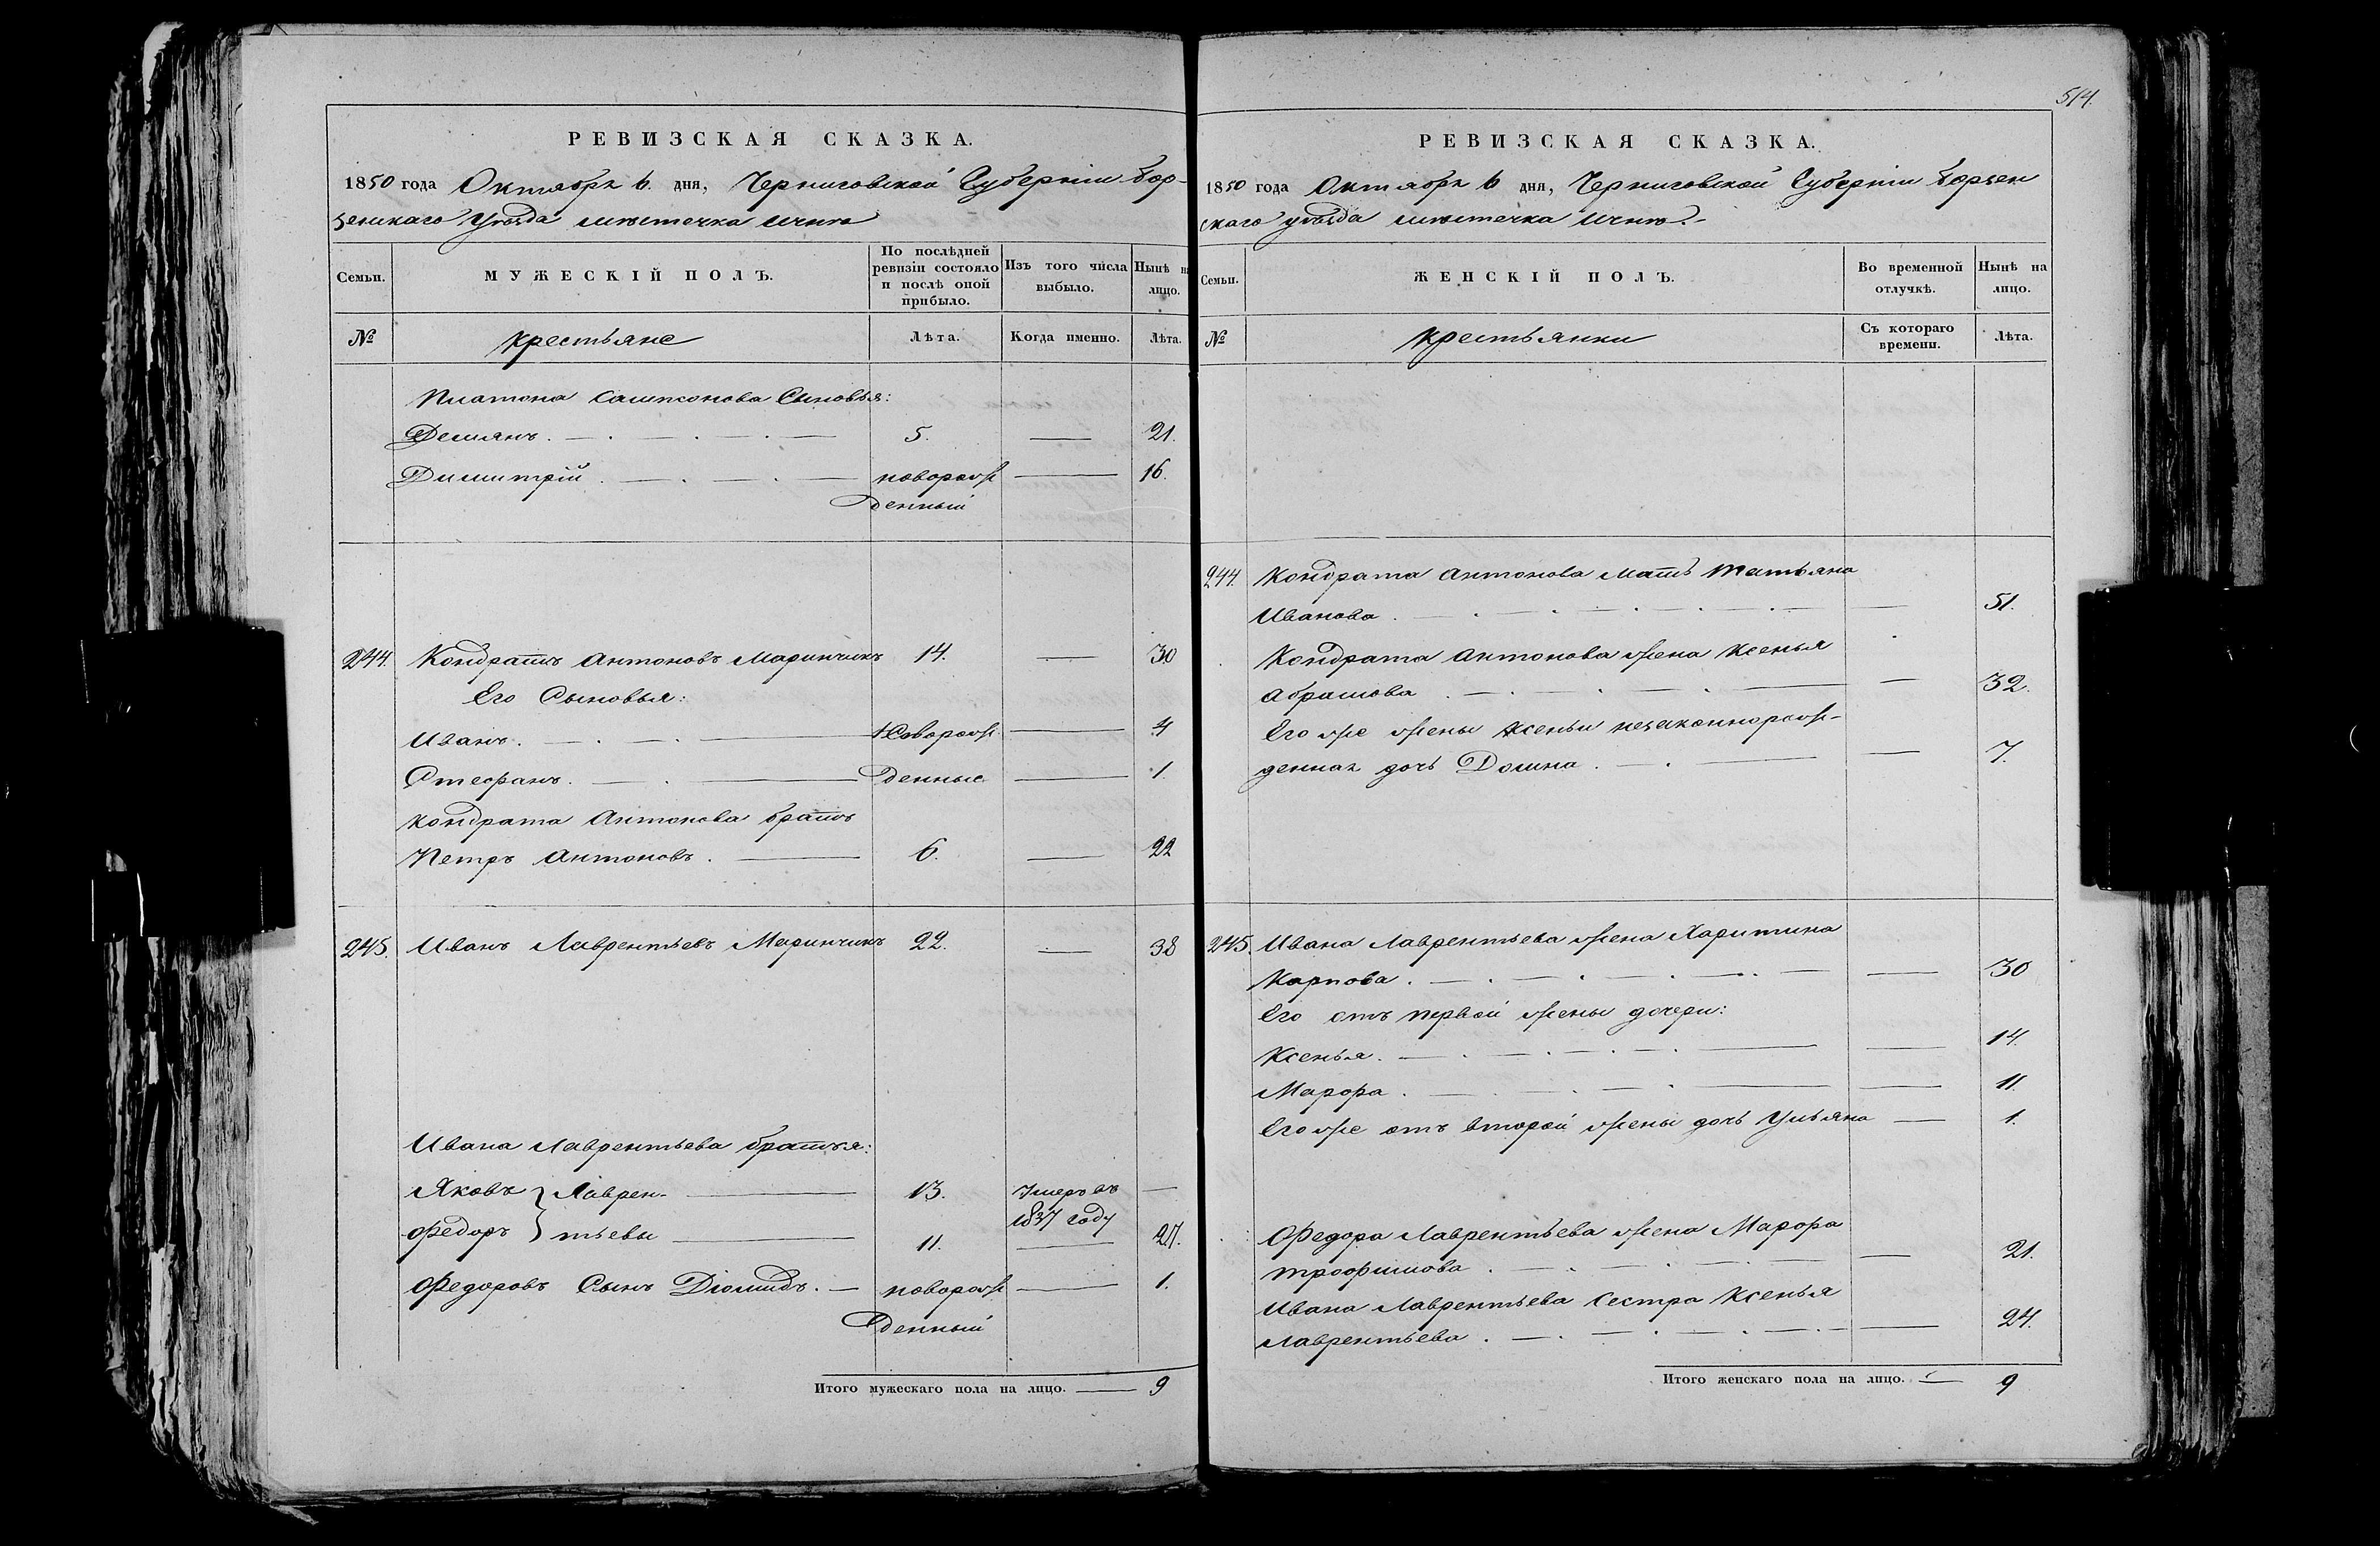 РЕВИЗСКАЯ СКАЗКА.
1850 года Октября 6. дня, Черниговской Губерніи Бор-
зенскаго Уѣзда мѣстечка Ичнѣ
Семьи.
МУЖЕСКІЙ ПОЛЪ.
По послѣдней ревизіи состояло и послѣ оной прибыло.
Изъ того числа выбыло.
Нынѣ на лицо.
№
крестьяне
Лѣта.
Когда именно.
Лѣта.
Платона Сампсонова Сыновья:
Демианъ. 5. — 21.
Димитрій новорож — 16.
денный
244. Кондратъ Антоновъ Маринчикъ 14. — 30
Его Сыновья:
Иванъ. Новорож — 4
Стефанъ. денные — 1.
Кондрата Антонова братъ
Петръ Антоновъ. 6. — 22
245. Иванъ Лаврентьевъ Маринчикъ 22. — 38
Ивана Лаврентьева братья:
Яковъ } Лаврен- 13. Умеръ въ —
1837 году
Федоръ } тьевы 11. — 27.
Федоровъ Сынъ Діомидъ. — новорож — 1.
денный
Итого мужескаго пола на лицо. — 9
514.
РЕВИЗСКАЯ СКАЗКА.
1850 года Октября 6 дня, Черниговской Губерніи Борзен
скаго уѣзда мѣстечка Ичнѣ.
Семьи.
ЖЕНСКІЙ ПОЛЪ.
Во временной отлучкѣ.
Нынѣ на лицо.
№
крестьянки
Съ котораго времени.
Лѣта.
244. Кондрата Антонова мать Татьяна
Иванова — 51.
Кондрата Антонова жена Ксенья
Абрамова — 32.
Его же жены Ксеньи незаконнорож-
денная дочь Домна. — 7.
245. Ивана Лаврентьева жена Харитина
Карпова. — 30
Его отъ первой жены дочери:
Ксенья. — 14.
Марфа. — 11.
Его же отъ второй жены дочь Ульяна — 1.
Федора Лаврентьева жена Марфа
Трофимова. — 21.
Ивана Лаврентьева сестра Ксенья
Лаврентьева. — 24.
Итого женскаго пола на лицо. — 9